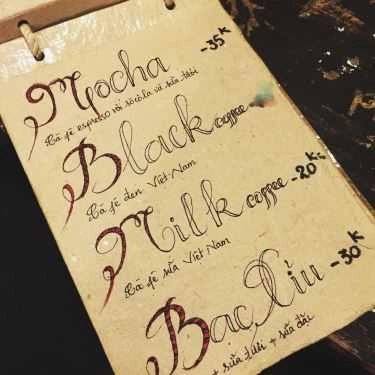 Mocha -35K
Cà fê espresso với sôcôla và sữa tươi
Black coffee
Cà fê đen Việt Nam
Milk coffee -20K
Cà fê sữa Việt Nam
Bạc Xỉu -30K
+ sữa tươi + sữa đặc